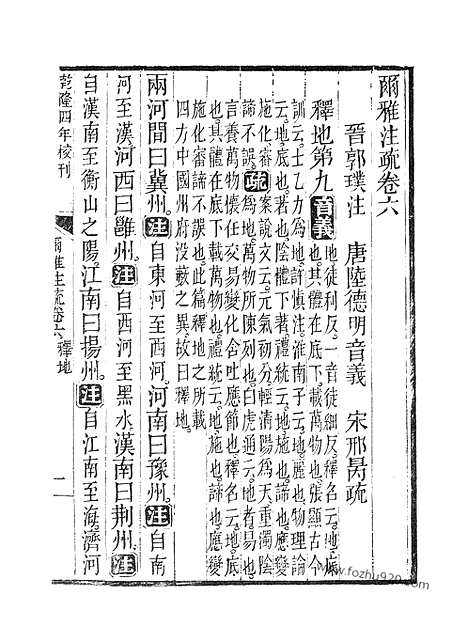 爾雅注疏卷六
晉郭璞注 唐陸德明音義 宋邢昺疏
釋地第九音義地徒利反一音徒細反釋名云地底
也其體在底下載萬物也張顯古今
訓云土乙力為地許慎注淮南子云地麗也物理論
云地底也著也陰體下著也禮統云地施也諦也應變
施化審
諦不誤疏案說文云元氣初分輕清陽為天重濁陰
為地萬物所陳列也白虎通云地者易也
言養萬物懷任交易變化含吐應節也釋名云地底
也其體在底下載萬物也禮統云地施也諦也應變
施化審諦不誤也此篇釋地之所載
四方中國州府沒藪之異故曰釋地
兩河間曰冀州注自東河至西河河南曰豫州注自南
河至漢河西曰雝州注自西河至黑水漢南曰荆州注
自漢南至衡山之陽江南曰揚州注自江南至海濟河
乾隆四年校刊
爾雅注疏卷六 釋地
一
www.fozhu920.com